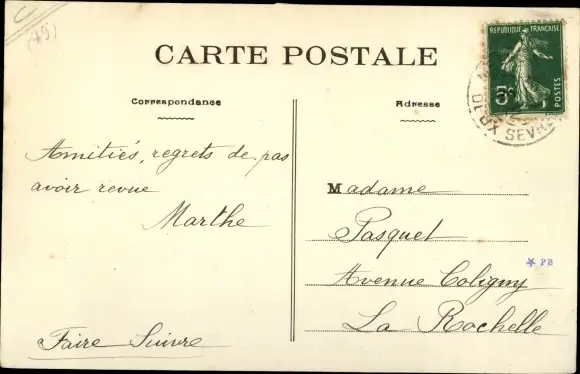 (79)
CARTE POSTALE
Correspondance
Adresse
REPUBLIQUE FRANÇAISE
5c
POSTES
DEUX SEVRES
Amitiés, regrets de pas
avoir revue
Marthe
Faire Suivre
Madame
Pasquet
Avenue Coligny
La Rochelle
* PB